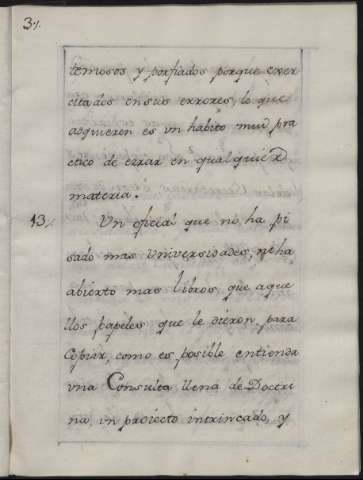 31.
temosos y porfiados porque exer
citados en sus errores, lo que
adquieren es vn habito mui pra
ctico de errar en qualquier
materia.
13. Un oficial que no ha pi
sado mas Universidades, ni ha
abierto mas libros, que aque
llos papeles que le dieron para
Copiar, como es posible entienda
vna Consulta llena de Doctri
na, vn proiecto intrincado, y